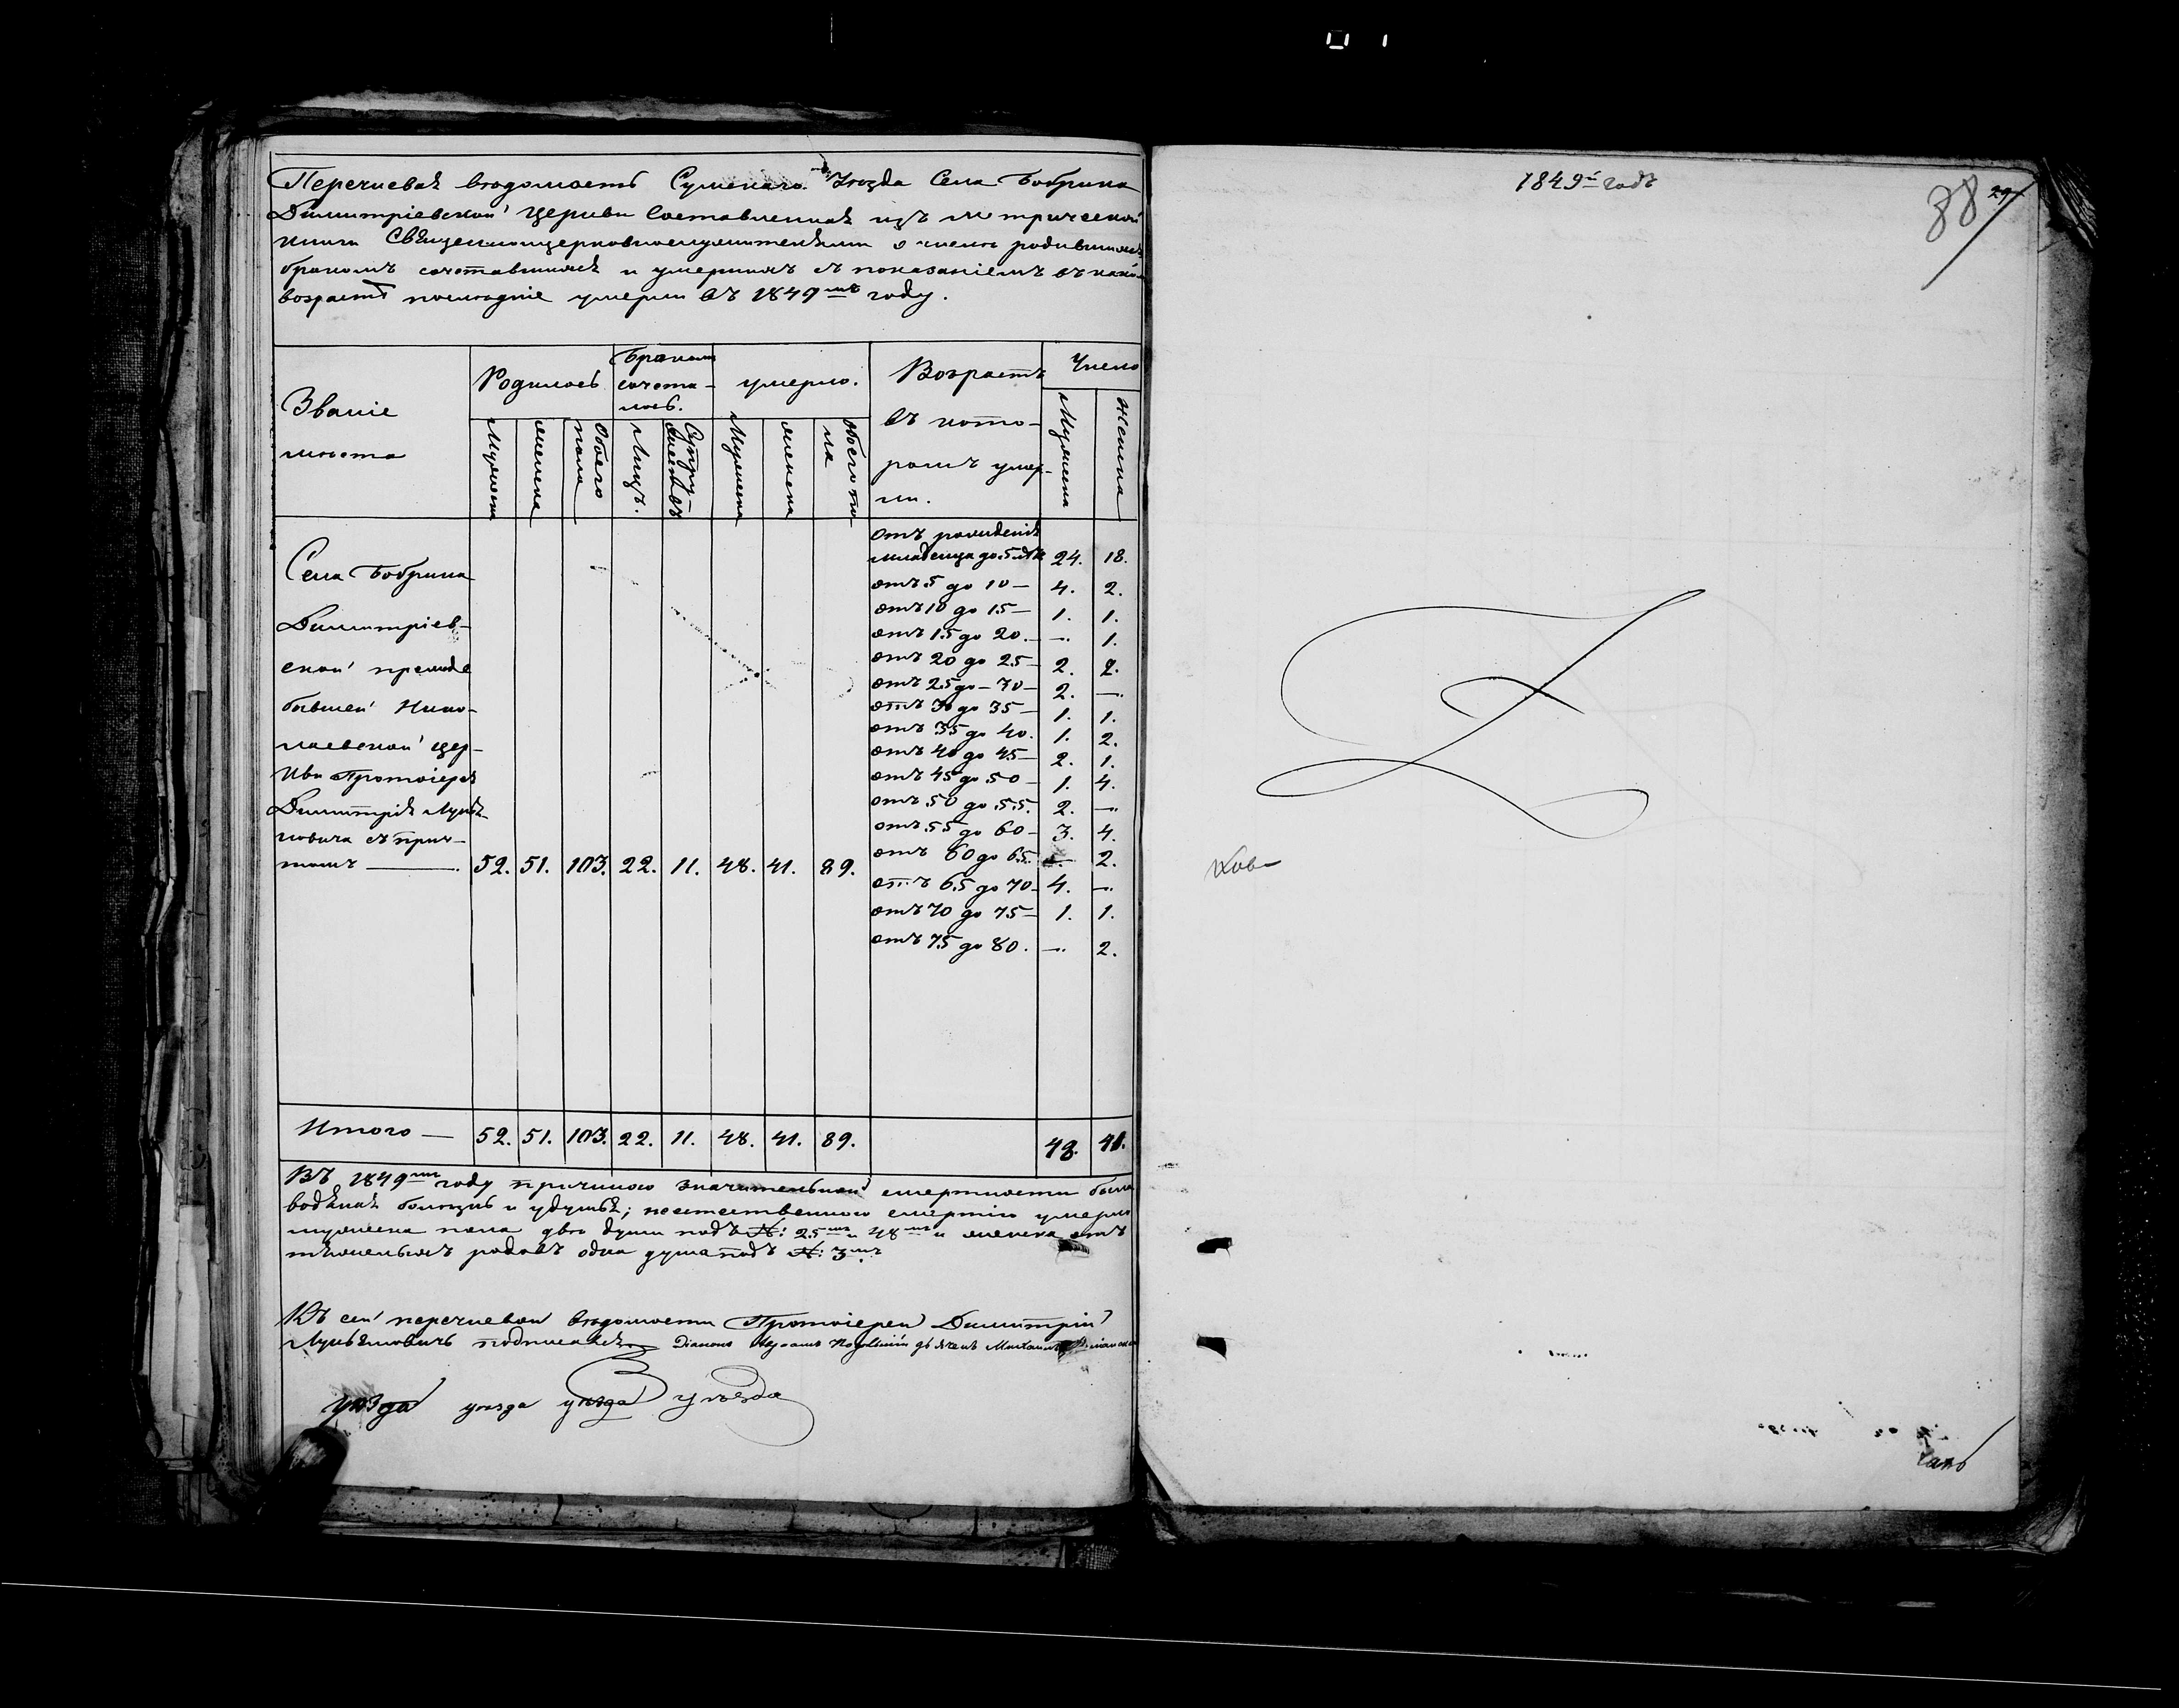 Перечневая ведомость Сумскаго Уѣзда Села Бобрика
Димитріевской Церкви составленная изъ метрической
книги Священноцерковнослужителями о числѣ родившихся
бракомъ сочетавшихся и умершихъ съ показаніемъ въ какомъ
возрастѣ послѣдніе умерли въ 1849мъ году.
Званіе
мѣста
Родилось
Бракомъ
сочета-
лось.
умерло.
Возрастъ
въ кото-
ромъ умер-
ли.
Число
Мужеска
женска
Обоего
пола
Лицъ.
Супру-
жествъ
Мужеска
женска
обоего по
ла
Мужеска
женска
отъ рожденія
младенца до 5 лѣтъ 24. 18.
отъ 5 до 10 — 4. 2.
отъ 10 до 15 — 1. 1.
отъ 15 до 20. — —. 1.
отъ 20 до 25 — 2. 2.
отъ 25 до — 30 — 2. —.
отъ 30 до 35 — 1. 1.
отъ 35 до 40. 1. 2.
отъ 40 до 45 — 2. 1.
отъ 45 до 50 — 1. 4.
отъ 50 до 55. 2. —.
отъ 55 до 60 — 3. 4.
отъ 60 до 65. —. 2.
отъ 65 до 70 — 4. —.
отъ 70 до 75 — 1. 1.
отъ 75 до 80. —. 2.
Села Бобрика
Димитріев-
ской прежде
бывшей Нико-
лаевской цер-
кви Протоіерея
Димитрія Лукья-
новича съ прич-
томъ — 52. 51. 103. 22. 11. 48. 41. 89.
Итого — 52. 51. 103. 22. 11. 48. 41. 89. 48. 41.
Въ 1849мъ году причиною значительной смертности была
водяная болѣзнь и удушья; неестественною смертію умерло
мужеска пола двѣ души подъ №: 25мъ и 48мъ и женска отъ
тяжелыхъ родовъ одна душа подъ №: 3мъ.
Къ сей перечневой ведомости Протоіерей Димитрій
Лукьяновичъ подписался Діаконъ дьячекъ Михаилъ
уѣзда уѣзда уѣзда уѣзда
1849й годъ
88
29